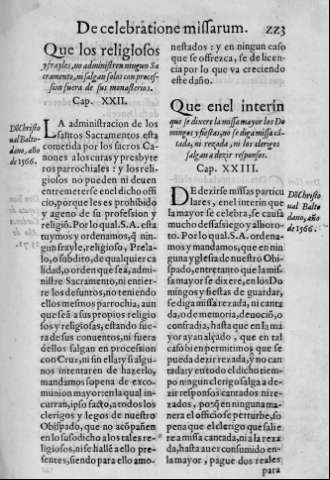 De celebratione missarum. 223
Que los religiosos
y frayles, no administren ningun Sa
cramento, ni salgan solos con proces-
sion fuera de sus monasterios.
Cap. XXII.
Dō Christo
ual Balto-
dano, año
de 1566.
LA administracion de los
santos Sacramentos esta
cometida por los sacros Ca-
nones a los curas y presbyte
ros parrochiales: y los reli-
giosos no pueden ni deuen
entremeterse en el dicho offi
cio, porque les es prohibido
y ageno de su profession y
religiō. Por lo qual S.A. esta
tuymos y ordenamos, q̄ nin
gun frayle, religioso, Prela-
lo, o subdito, de qualquier ca
lidad, o orden que sea, admi-
nistre Sacramento, ni entier-
re los defuntos, no teniendo
ellos mesmos parrochia, aun
que seā a sus propios religio
sos y religiosas, estando fue-
ra de sus conuentos, ni fuera
dellos salgan en procession
con Cruz, ni sin ella: y si algu-
nos intentaren de hazerlo,
mandamos so pena de exco-
munion mayor: en la qual in-
curran, ipso facto, a todos los
clerigos y legos de nuestro
Obispado, que no acōpañen
en lo susodicho a los tales re-
ligiosos, ni se hallē a ello pre-
sentes, siendo para ello amo-
nestados: y en ningun caso
que se offrezca, se de licen-
cia por lo que va creciendo
este daño.
Que en el interin
que se dixere la missa mayor los Do
mingos y fiestas, no se diga missa cā-
tada, ni rezada, ni los clerigos
salgan a dezir responsos.
Cap. XXIII.
Dō Christo
ual Balto
dano, año
de 1566.
DE dezirse missas particu
lares, en el interin que
la mayor se celebra, se causa
mucho desassosiego y alboro-
to. Por lo qual S.A. ordena-
mos y mandamos, que en nin
guna yglesia de nuestro Obi-
spado, entretanto que la mis-
sa mayor se dixere, en los Do
mingos y fiestas de guardar,
se diga missa rezada, ni canta
da, o de memoria, deuociō, o
confadia, hasta que en la ma
yor ayan alçado, que en tal
caso bien permitimos que se
pueda dezir rezada, y no can
tada: y en todo el dicho tiem-
po ningun clerigo salga a de-
zir responsos cantados ni re-
zados, porq̄ en ninguna ma-
nera el officio se perturbe, so
pena que el clerigo que salie
re a missa cantada, ni a la reza
da, hasta auer consumido en
la mayor, pague dos reales
para